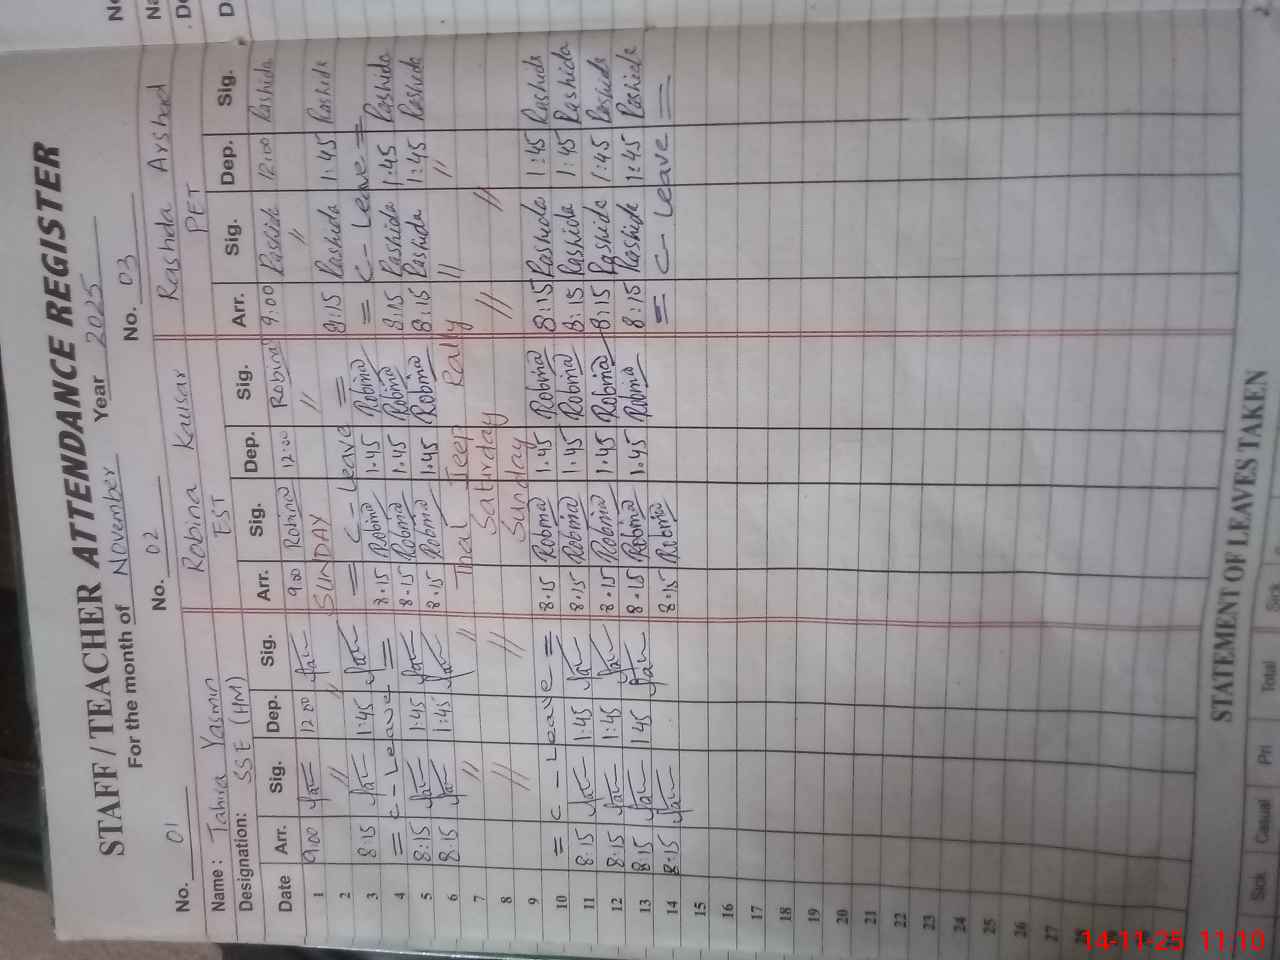 STAFF / TEACHER ATTENDANCE REGISTER
For the month of November Year 2025
No. 01 No. 02 No. 03
Name: Tahira Yasmin Robina Kausar Rashda Arshad
Designation: SSE (HM) EST PET
Date Arr. Sig. Dep. Sig. Arr. Sig. Dep. Sig. Arr. Sig. Dep. Sig.
1 9:00 12:00 9:00 Robina 12:00 Robina 9:00 Rashida 12:00 Rashida
2 // // SUNDAY // //
3 8:15 1:45 = C - Leave = 8:15 Rashida 1:45 Rashida
4 = C - Leave = 8.15 Robina 1.45 Robina = C - Leave =
5 8:15 1:45 8.15 Robina 1.45 Robina 8:15 Rashida 1:45 Rashida
6 8:15 1:45 8.15 Robina 1.45 Robina 8:15 Rashida 1:45 Rashida
7 // // Thal Jeep Rally // //
8 // // Saturday // //
9 Sunday
10 = C - Leave = 8.15 Robina 1.45 Robina 8:15 Rashida 1:45 Rashida
11 8:15 1:45 8.15 Robina 1.45 Robina 8:15 Rashida 1:45 Rashida
12 8:15 1:45 8.15 Robina 1.45 Robina 8:15 Rashida 1:45 Rashida
13 8:15 1:45 8.15 Robina 1.45 Robina 8:15 Rashida 1:45 Rashida
14 8:15 8.15 Robina = C - Leave =
15
16
17
18
19
20
21
22
23
24
25
26
27
28
STATEMENT OF LEAVES TAKEN
Sick Casual Pri Total Sick
14-11-25 11:10